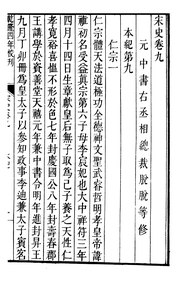 宋史卷九
元中書右丞相總裁脫脫等修
本紀第九
仁宗一
仁宗體天法道極功全德神文聖武睿哲明孝皇帝諱
禎初名受益真宗第六子母李宸妃也大中祥符三年
四月十四日生章獻皇后無子取為己子養之天性仁
孝寬裕喜慍不形於色七年封慶國公八年封壽春郡
王講學於資善堂天禧元年兼中書令明年進封昇王
九月丁卯冊為皇太子以參知政事李迪兼太子賓客